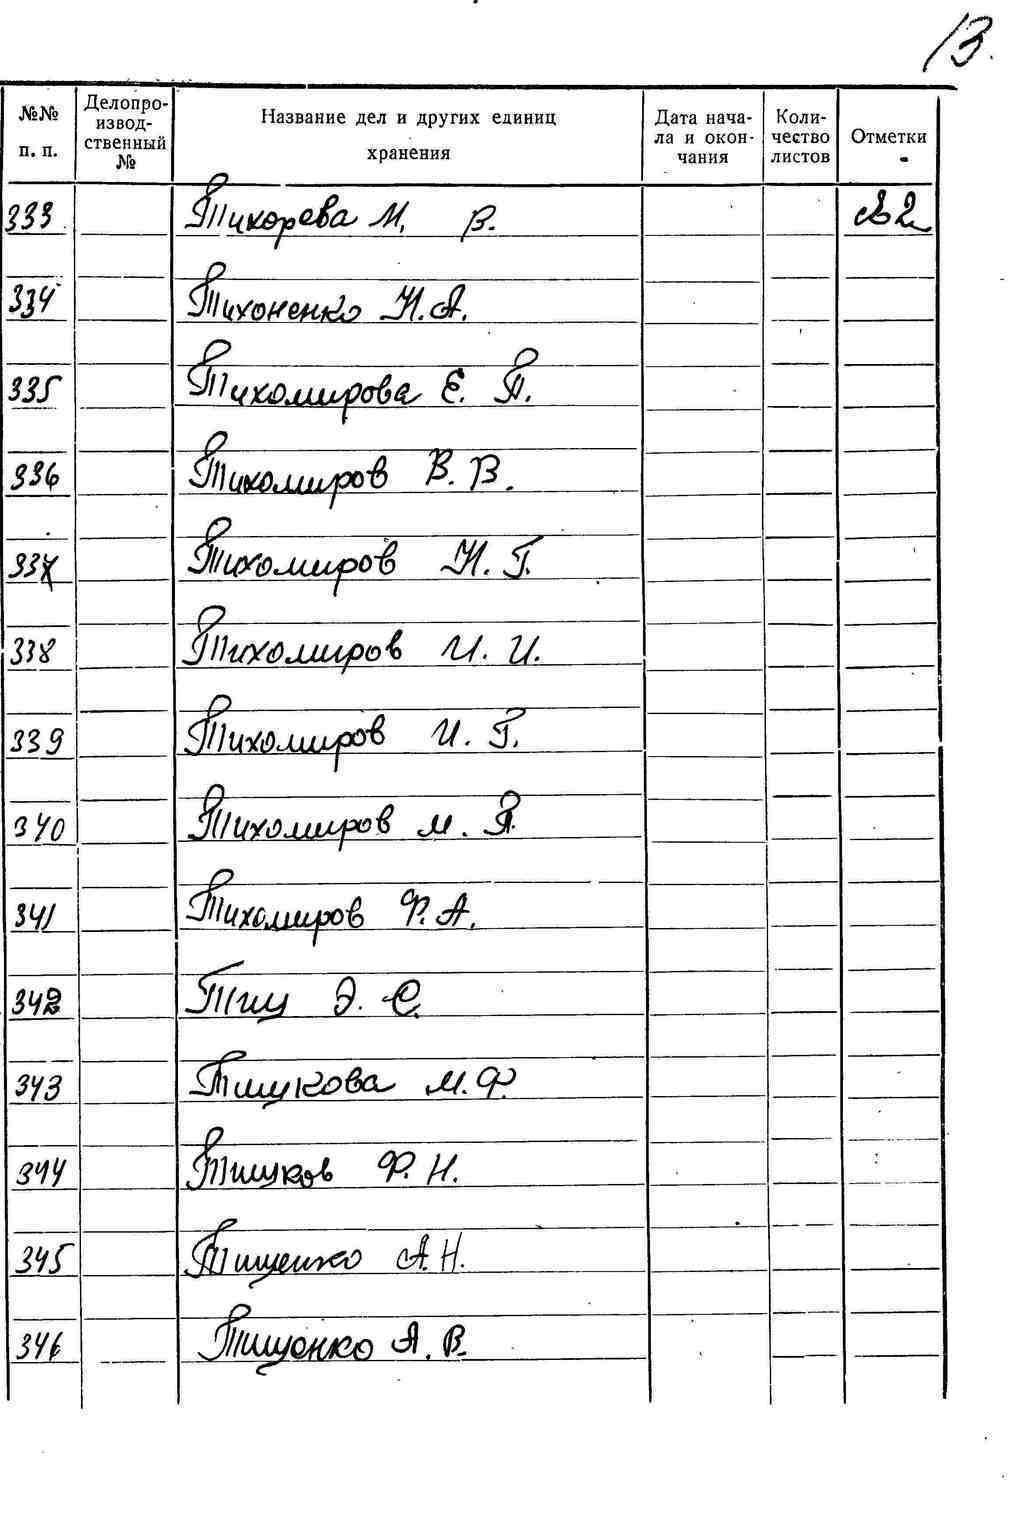 13.
№№ п. п. Делопро-извод-ственный № Название дел и других единиц хранения Дата нача-ла и окон-чания Коли-чество листов Отметки
333 Тихорева М. В.
334 Тихоненко Н. А.
335 Тихомирова Е. П.
336 Тихомиров В. В.
337 Тихомиров Н. Г.
338 Тихомиров И. И.
339 Тихомиров И. Г.
340 Тихомиров М. П.
341 Тихомиров Ф. А.
342 Тиц Э. С.
343 Тишукова М. Ф.
344 Тишков Ф. Н.
345 Тищенко А. Н.
346 Тищенко А. В.